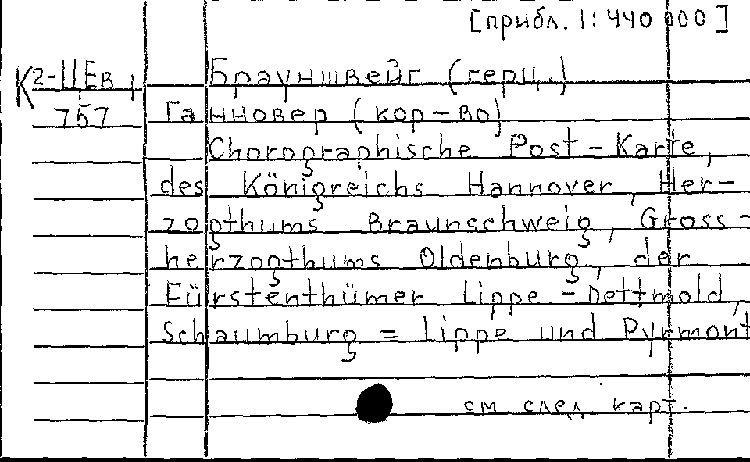 [прибл. 1:440 000]
К 2-ЦЕв 1
757
Брауншвейг (герц.)
Ганновер (кор-во)
Chorographische Post-Karte,
des Königreichs Hannover, Her-
zogthums Braunschweig, Gross-
herzogthums Oldenburg, der
Fürstenthümer Lippe-Dettmold,
Schaumburg = Lippe und Pyrmont
см след. карт.